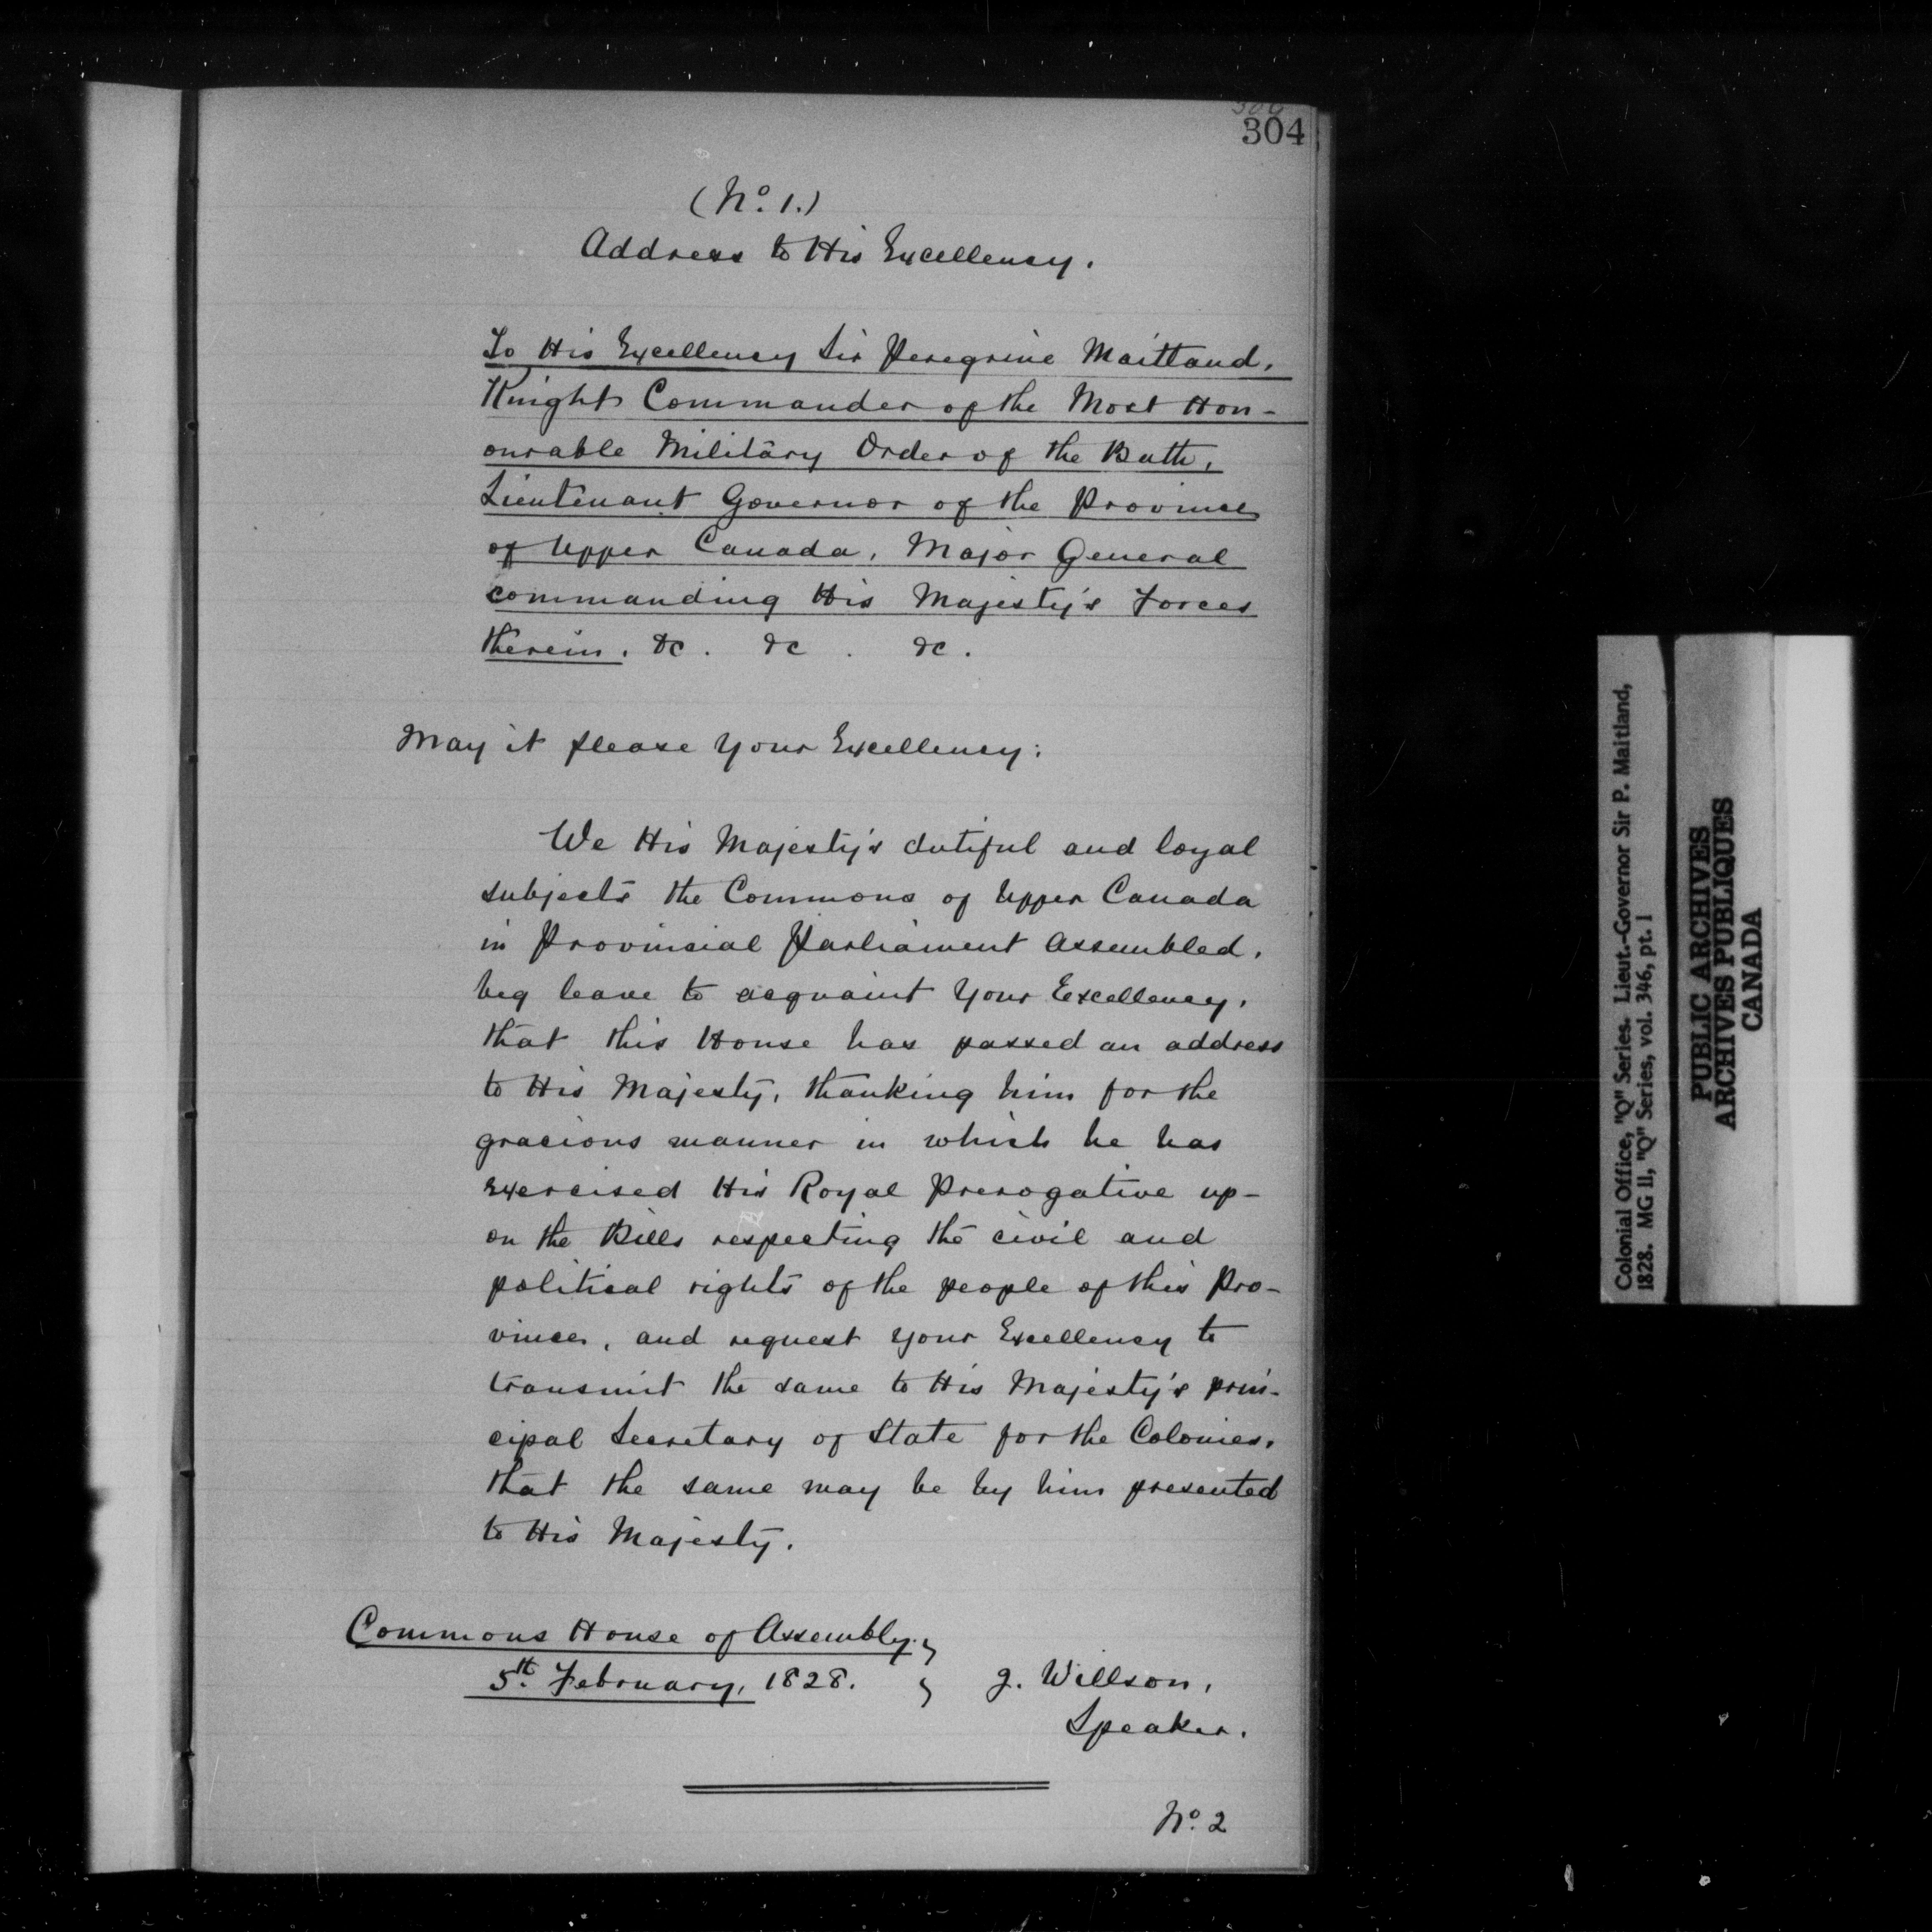 304
(No. 1.)
Address to His Excellency.
To His Excellency Sir Peregrine Maitland,
Knight Commander of the Most Hon-
ourable Military Order of the Bath,
Lieutenant Governor of the Province
of Upper Canada, Major General
commanding His Majesty's Forces
therein, &c. &c. &c.
May it please Your Excellency:
We His Majesty's dutiful and loyal
subjects the Commons of Upper Canada
in Provincial Parliament Assembled,
beg leave to acquaint Your Excellency,
that this House has passed an address
to His Majesty, thanking him for the
gracious manner in which he has
exercised His Royal Prerogative up-
on the Bills respecting the civil and
political rights of the people of this Pro-
vince, and request your Excellency to
transmit the same to His Majesty's prin-
cipal Secretary of State for the Colonies,
that the same may be by him presented
to His Majesty.
Commons House of Assembly,
5th February, 1828.
J. Willson,
Speaker.
No. 2
Colonial Office, "Q" Series. Lieut.-Governor Sir P. Maitland,
1828. MG 11, "Q" Series, vol. 346, pt. 1
PUBLIC ARCHIVES
ARCHIVES PUBLIQUES
CANADA